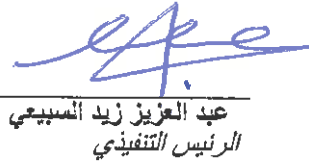 عبد العزيز زيد السبيعي
الرئيس التنفيذي